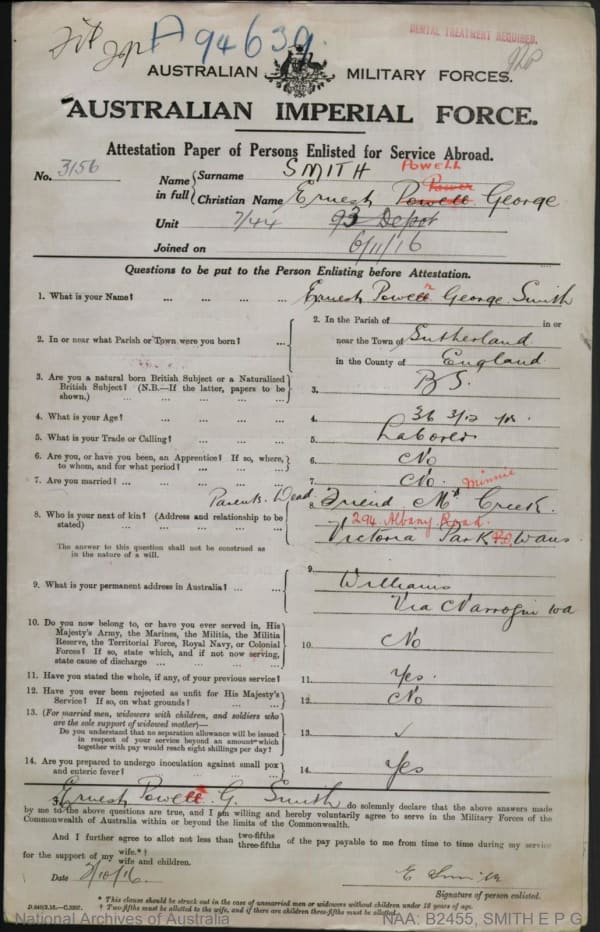 A 94639.
DENTAL TREATMENT REQUIRED.
AUSTRALIAN MILITARY FORCES.
AUSTRALIAN IMPERIAL FORCE.
Attestation Paper of Persons Enlisted for Service Abroad.
No. 3156
Name in full { Surname SMITH POWELL
Christian Name Ernest Powell Power George
Unit 7/44 93 Depot
Joined on 6/11/16
Questions to be put to the Person Enlisting before Attestation.
1. What is your Name? ... ... ... Ernest Powell George Smith
2. In or near what Parish or Town were you born? ... 2. In the Parish of in or
near the Town of Sutherland
in the County of England
3. Are you a natural born British Subject or a Naturalized
British Subject? (N.B.—If the latter, papers to be
shown.) ... ... ... ... 3. B S.
4. What is your Age? ... ... ... 4. 36 3/12 yrs.
5. What is your Trade or Calling? ... ... 5. Laborer
6. Are you, or have you been, an Apprentice? If so, where,
to whom, and for what period? ... ... ... 6. No
7. Are you married? ... ... ... ... 7. No.
Parents Dead. Friend Mrs Minnie Creek.
8. Who is your next of kin? (Address and relationship to be
stated) ... ... ... ... 8. 294 Albany Road.
Victoria Park PO, W aus
The answer to this question shall not be construed as
in the nature of a will.
9. What is your permanent address in Australia? ... ... 9. Williams
Via Narrogin WA
10. Do you now belong to, or have you ever served in, His
Majesty's Army, the Marines, the Militia, the Militia
Reserve, the Territorial Force, Royal Navy, or Colonial
Forces? If so, state which, and if not now serving,
state cause of discharge ... ... ... ... 10. No
11. Have you stated the whole, if any, of your previous service? 11. Yes.
12. Have you ever been rejected as unfit for His Majesty's
Service? If so, on what grounds? ... ... 12. No
13. (For married men, widowers with children, and soldiers who
are the sole support of widowed mother)—
Do you understand that no separation allowance will be issued
in respect of your service beyond an amount which
together with pay would reach eight shillings per day? 13. ✓
14. Are you prepared to undergo inoculation against small pox
and enteric fever? ... ... ... ... 14. Yes
I, Ernest Powell G. Smith do solemnly declare that the above answers made
by me to the above questions are true, and I am willing and hereby voluntarily agree to serve in the Military Forces of the
Commonwealth of Australia within or beyond the limits of the Commonwealth.
And I further agree to allot not less than two-fifths three-fifths of the pay payable to me from time to time during my service
for the support of my wife.*† wife and children.
Date 2/10/16. E Smith
Signature of person enlisted.
* This clause should be struck out in the case of unmarried men or widowers without children under 18 years of age.
† Two-fifths must be allotted to the wife, and if there are children three-fifths must be allotted.
National Archives of Australia NAA: B2455, SMITH E P G